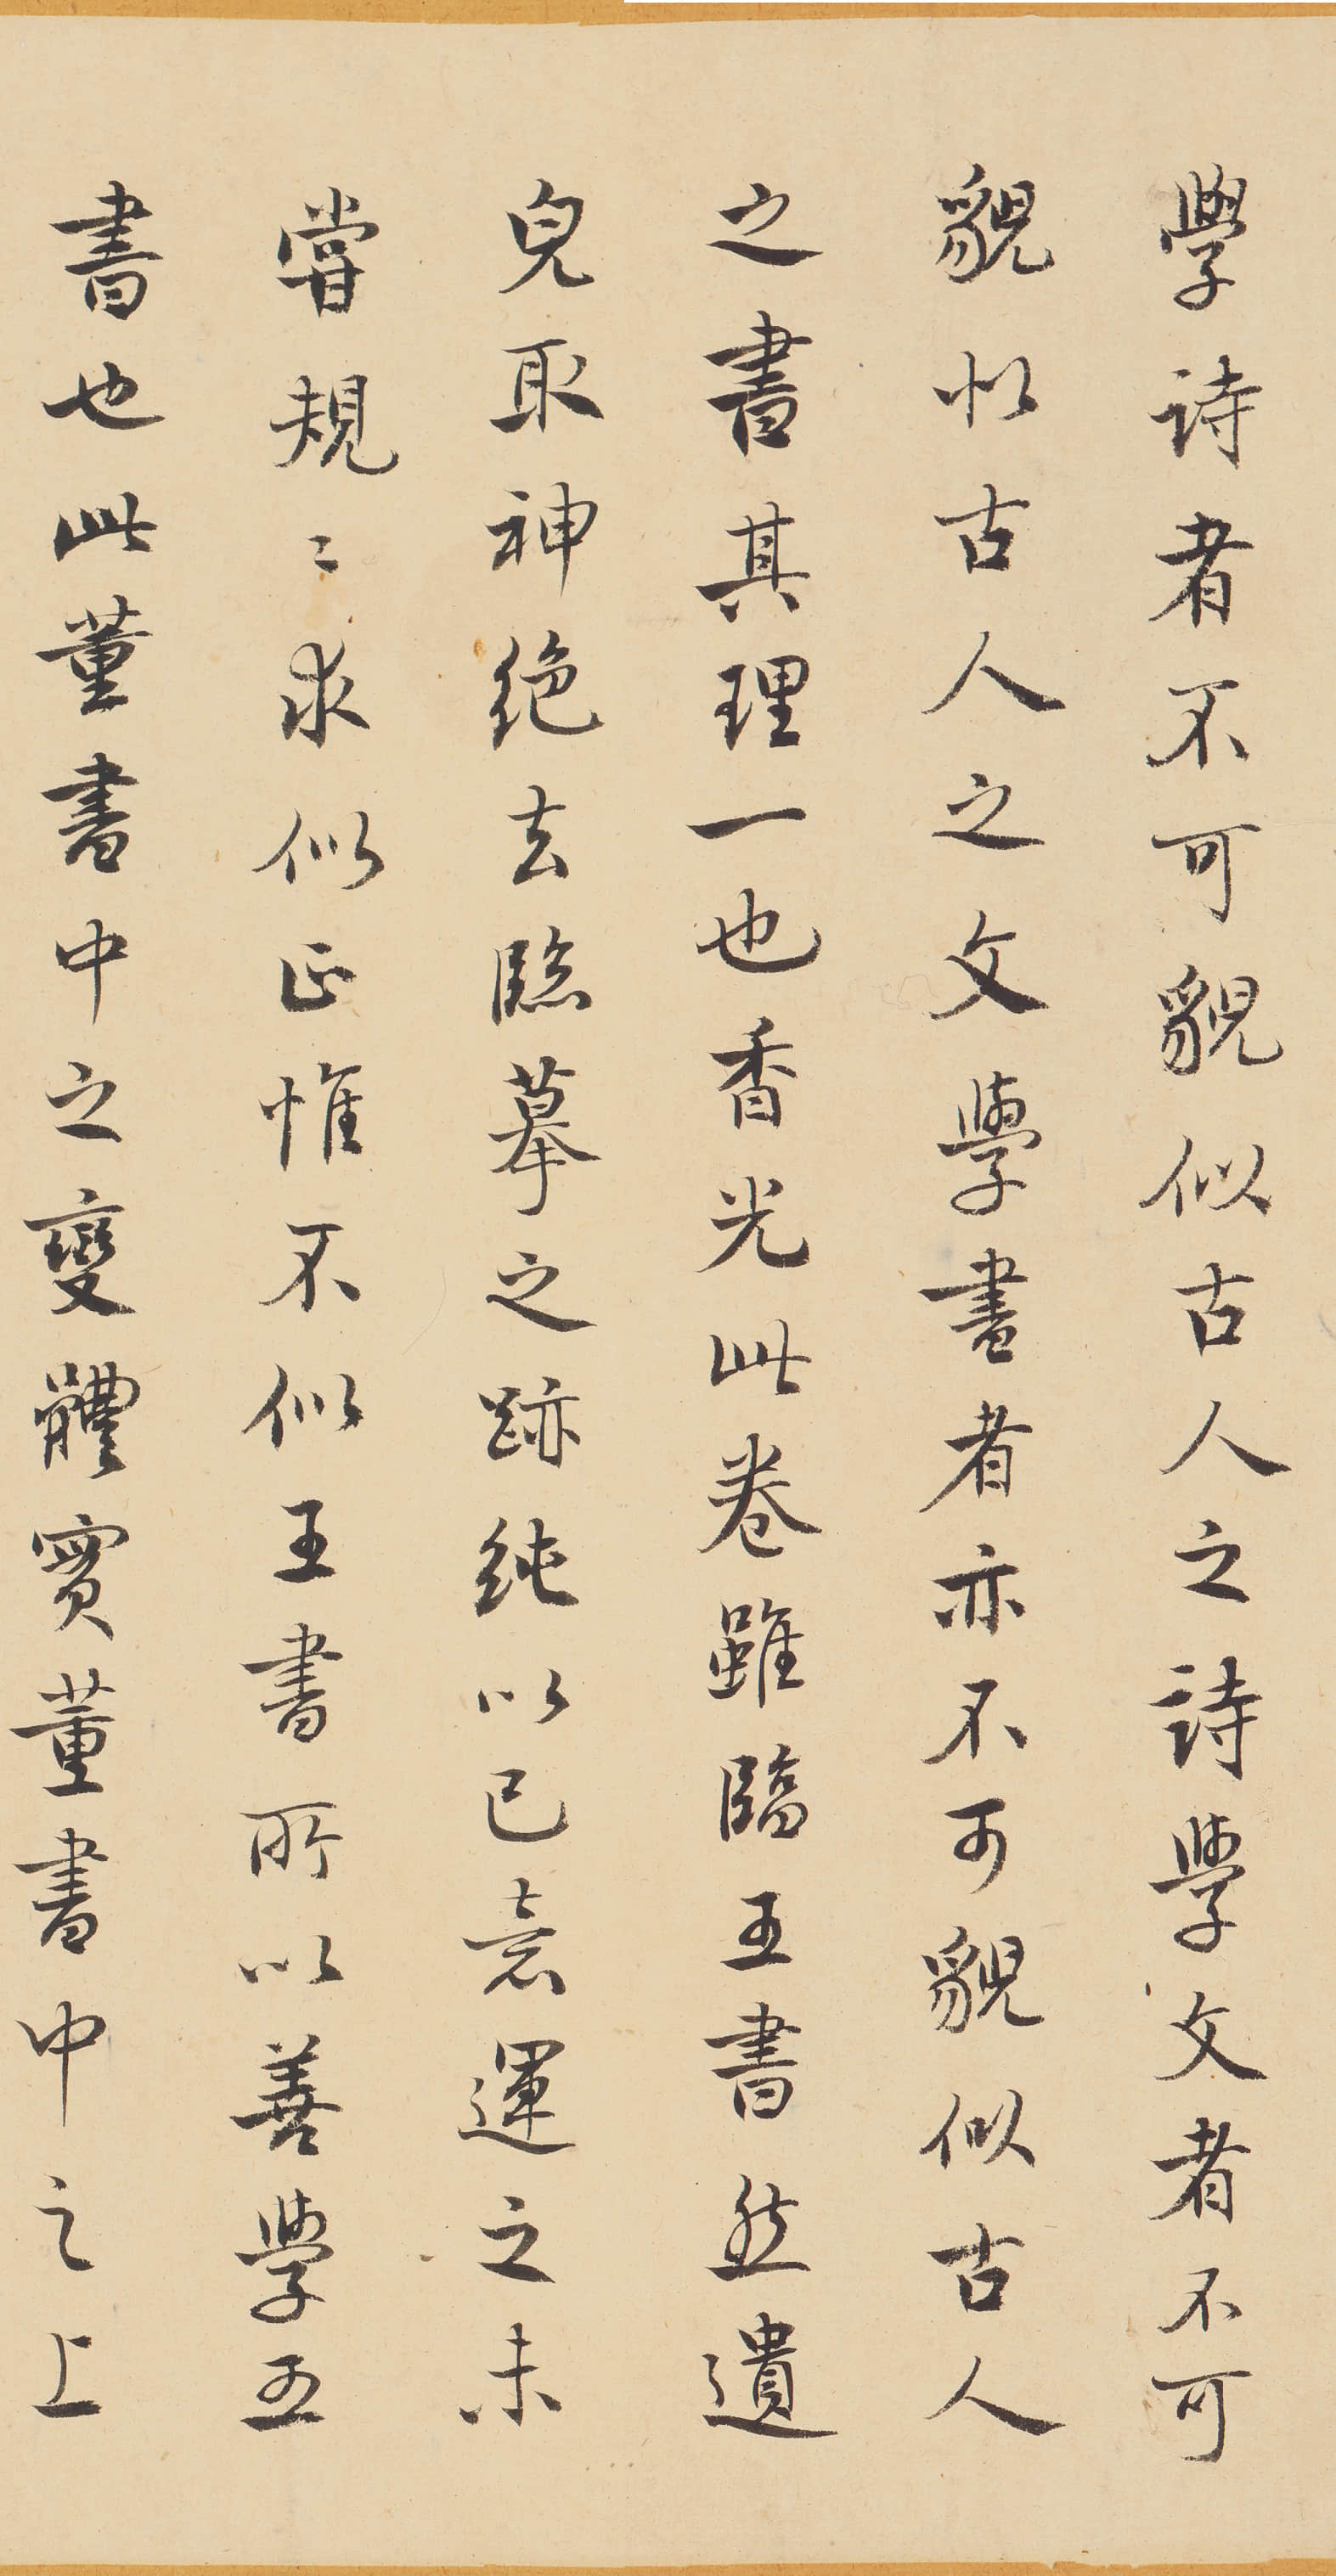 學詩者不可貌似古人之詩學文者不可
貌似古人之文學書者亦不可貌似古人
之書其理一也香光此卷雖臨王書然遺
皃取神絕去臨摹之跡純以己意運之未
嘗規〻求似正惟不似王書所以善學王
書也此董書中之變體實董書中之上